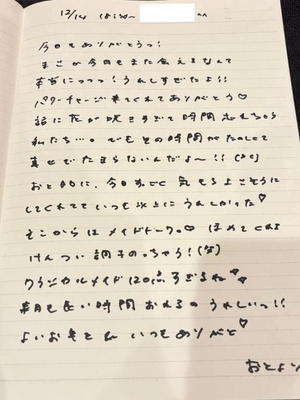 12/14 18:30〜
今日もありがとうっ!
まさか今月もまた会えるなんて
本当にっっっ!うれしすぎたよ!!
パワーチャージ来てくれてありがとう♡
話に花が咲きすぎて時間忘れちゃう
私たち...。でもその時間がたのしくて
幸せでたまらないんだよ〜!!
おと的に、今日すごく気もちよさそうに
してくれてていつも以上にうれしかった♡
そこからはメイドトーク。♡ ほめてくれる
けんつい調子のっちゃう!(笑)
クラシカルメイド120点すぎるね♡
朝も長い時間おれるのうれしいっ!!
よいお年を いつもありがと♡